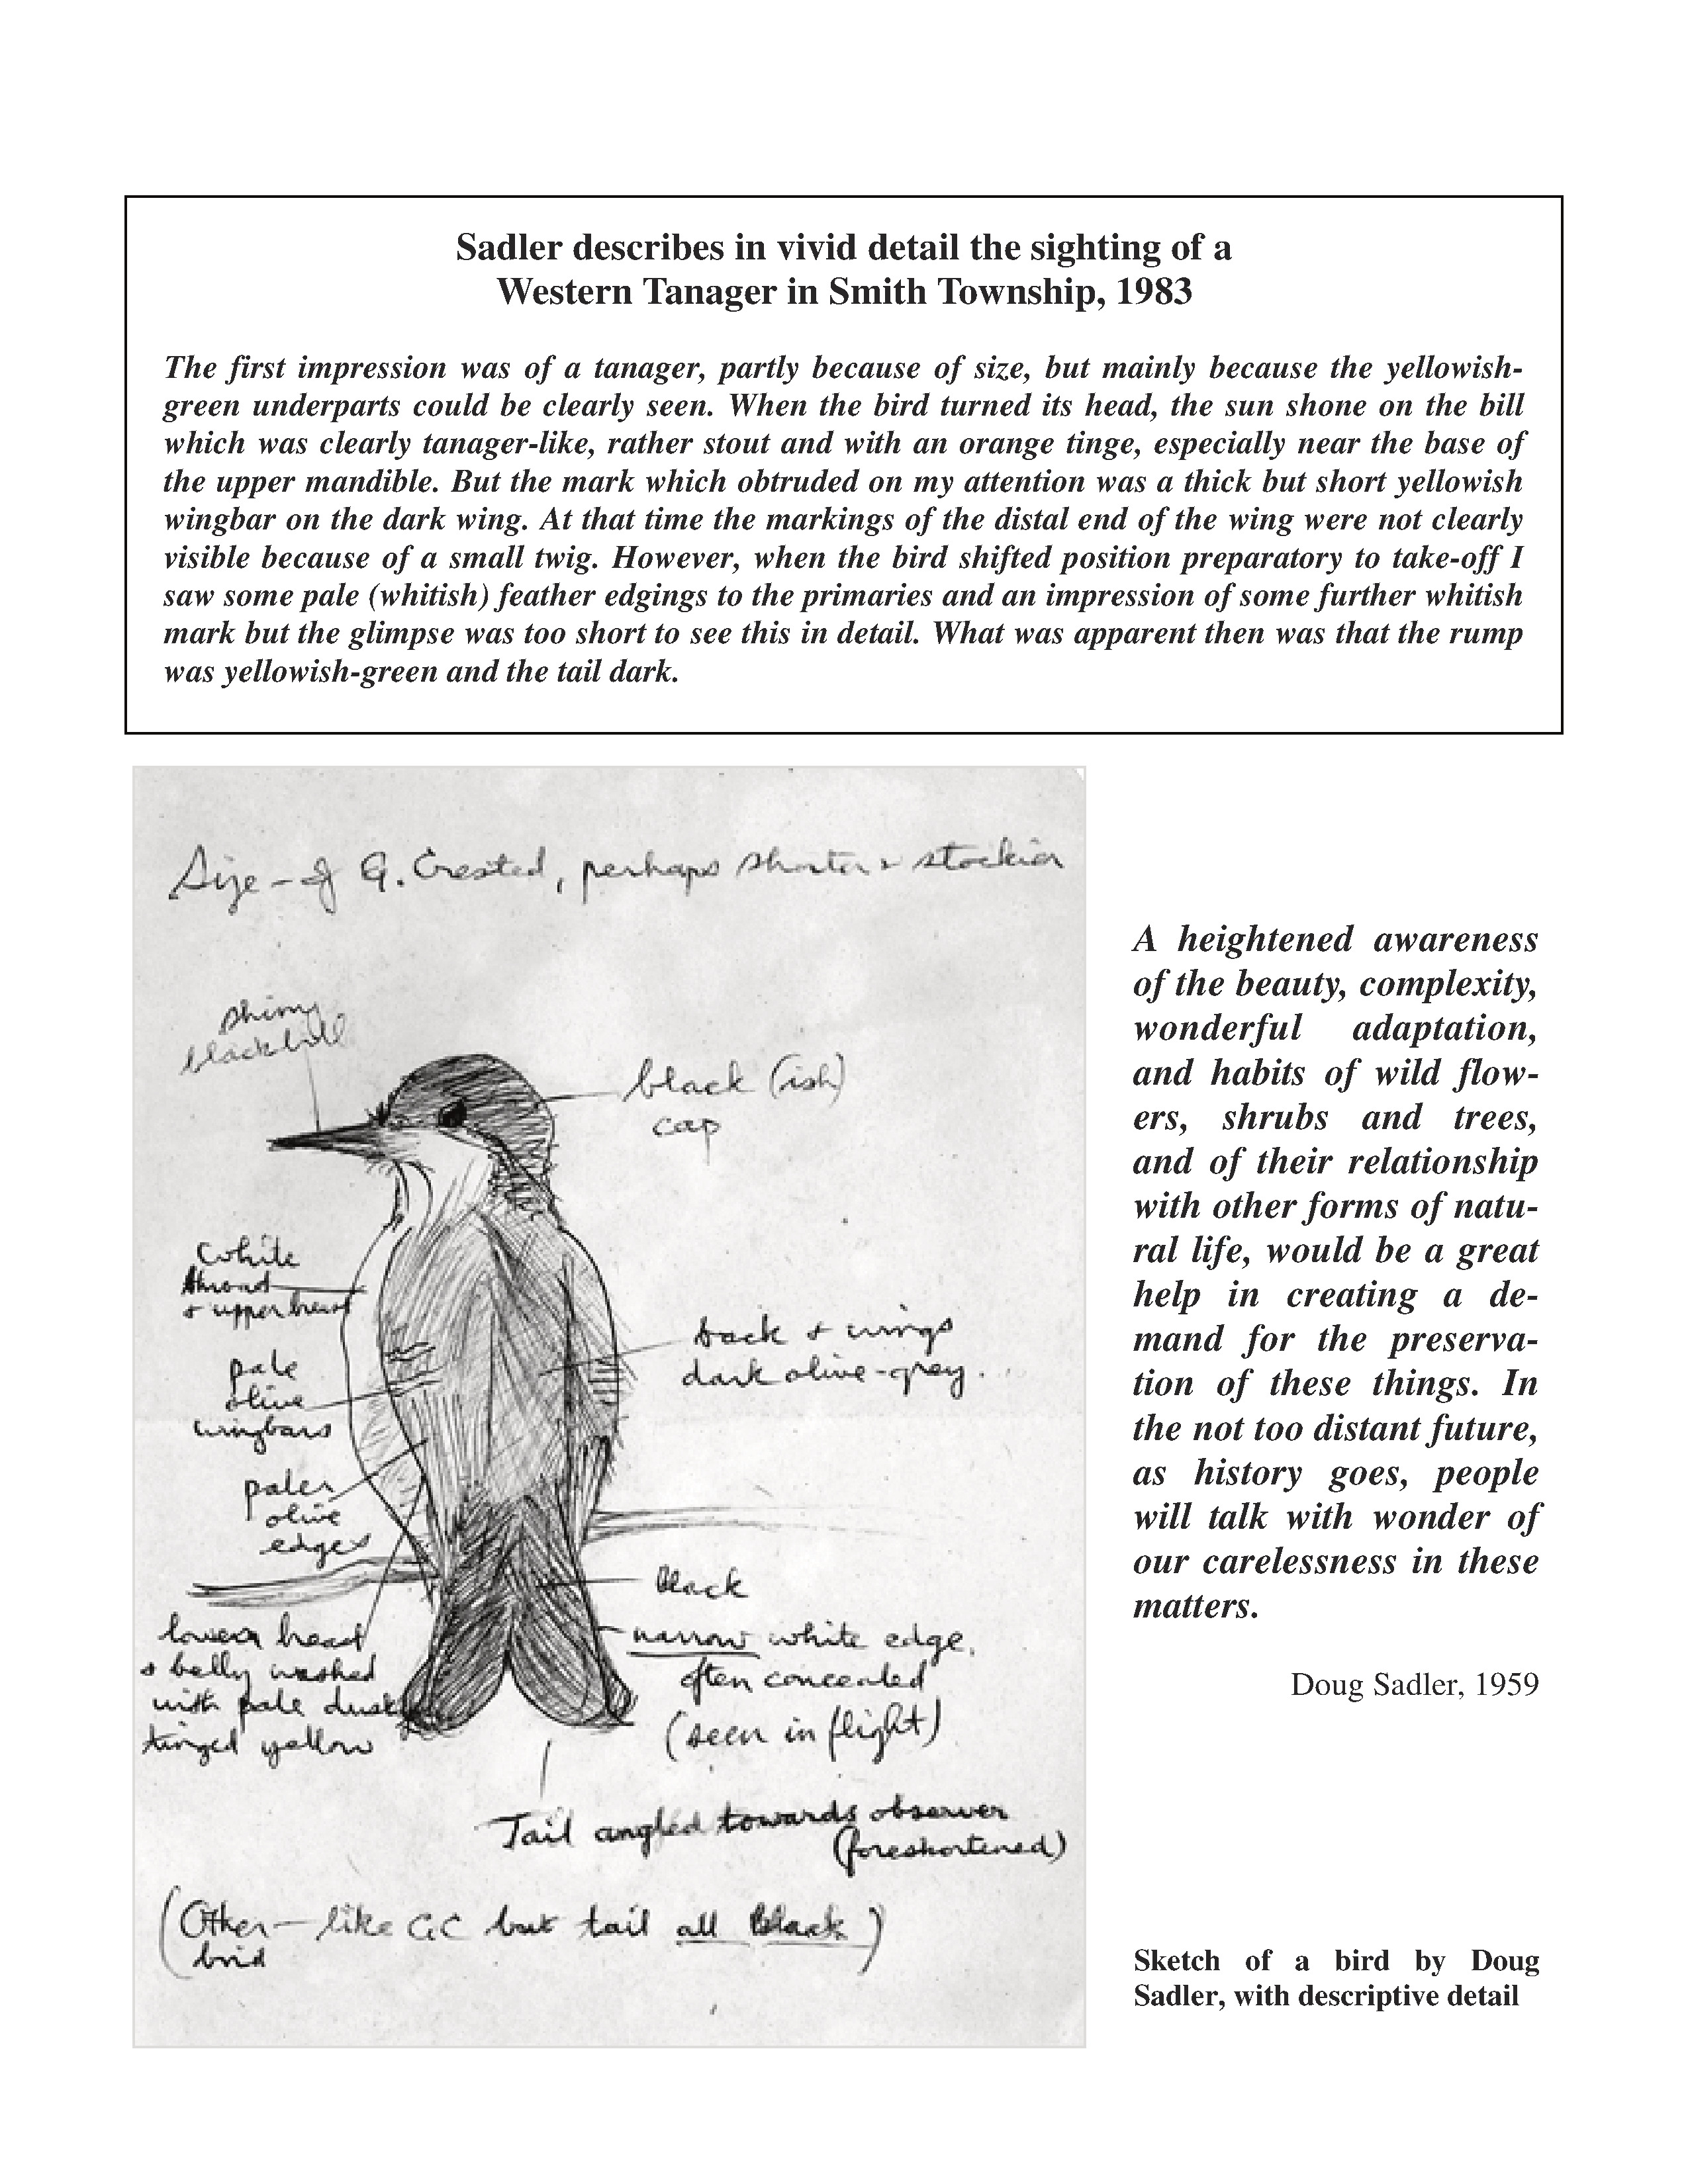 Sadler describes in vivid detail the sighting of a
Western Tanager in Smith Township, 1983
The first impression was of a tanager, partly because of size, but mainly because the yellowish-
green underparts could be clearly seen. When the bird turned its head, the sun shone on the bill
which was clearly tanager-like, rather stout and with an orange tinge, especially near the base of
the upper mandible. But the mark which obtruded on my attention was a thick but short yellowish
wingbar on the dark wing. At that time the markings of the distal end of the wing were not clearly
visible because of a small twig. However, when the bird shifted position preparatory to take-off I
saw some pale (whitish) feather edgings to the primaries and an impression of some further whitish
mark but the glimpse was too short to see this in detail. What was apparent then was that the rump
was yellowish-green and the tail dark.
Size - of G. Crested, perhaps shorter & stockier
shiny
black bill
black (ish)
cap
white
throat
+ upper breast
pale
olive
wingbars
paler
olive
edges
back + wings
dark olive-grey.
black
narrow white edge,
often concealed
(seen in flight)
lower breast
& belly washed
with pale dusky
tinged yellow
Tail angled towards observer
(foreshortened)
(Other - like GC but tail all black)
bird
A heightened awareness
of the beauty, complexity,
wonderful adaptation,
and habits of wild flow-
ers, shrubs and trees,
and of their relationship
with other forms of natu-
ral life, would be a great
help in creating a de-
mand for the preserva-
tion of these things. In
the not too distant future,
as history goes, people
will talk with wonder of
our carelessness in these
matters.
Doug Sadler, 1959
Sketch of a bird by Doug
Sadler, with descriptive detail